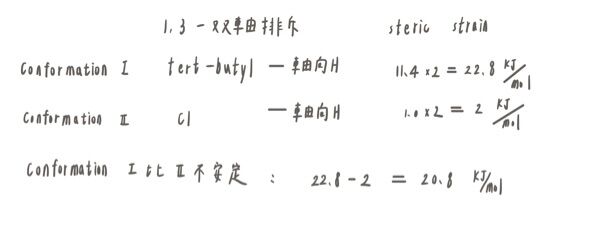 1,3-双軸排斥 steric strain
Conformation I tert-butyl — 軸向H 11.4 ×2 = 22.8 KJ/mol
Conformation II Cl — 軸向H 1.0 ×2 = 2 KJ/mol
Conformation I 比 II 不安定 : 22.8-2 = 20.8 KJ/mol